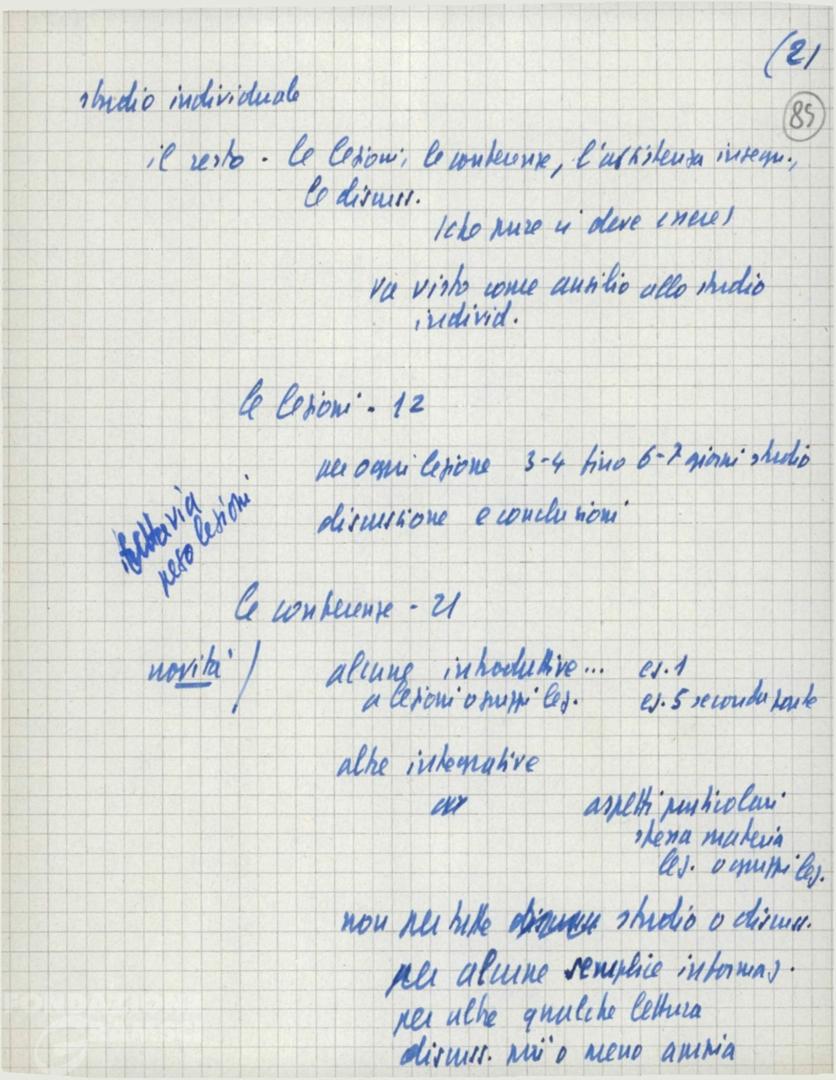 (2)
85
studio individuale
il resto - le lezioni, le conferenze, l'assistenza insegn.,
le discuss.
(che pure ci deve essere)
va visto come ausilio allo studio
individ.
le lezioni - 12
per ogni lezione 3-4 fino 6-7 giorni studio
discussione e conclusioni
tuttavia
peso lezioni
le conferenze - 21
novità / alcune introduttive... es. 1
a lezioni o gruppi lez. es. 5 seconda parte
altre integrative
aspetti particolari
stessa materia
lez. o gruppi lez.
non per tutte studio o discuss.
per alcune semplice informaz.
per altre qualche lettura
discuss. più o meno ampia